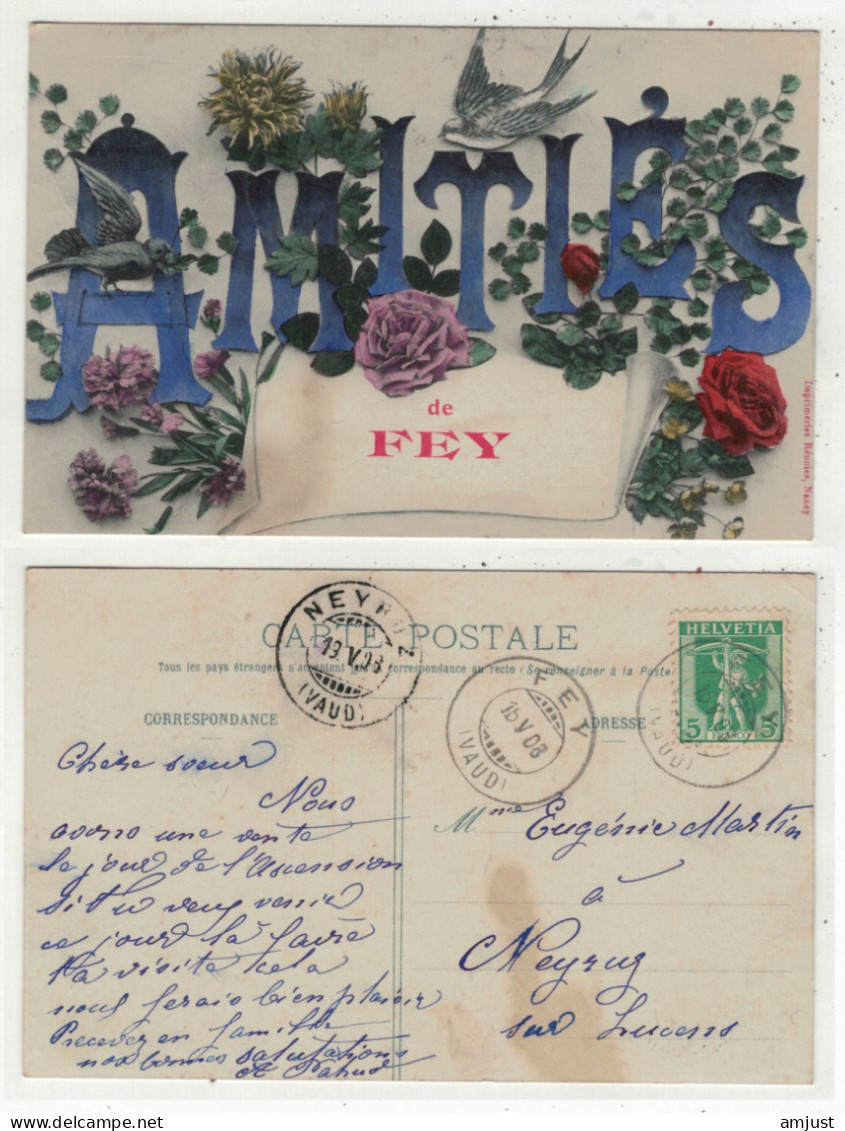 AMITIÉS
de
FEY
Imprimeries Réunies, Nancy
CARTE POSTALE
Tous les pays étrangers n'acceptent pas la correspondance au recto (Se renseigner à la Poste
NEYRUZ
19 V 08
(VAUD)
FEY
16 V 08
(VAUD)
HELVETIA
5 FRANCO 5
FEY
(VAUD)
CORRESPONDANCE
ADRESSE
Chère soeur
Nous
avons une vente
le jour de l'Ascension
si tu veux venir
ce jour là faire
ta visite cela
nous ferais bien plaisir
Recevez en famille
nos bonnes salutations
A Pahud
Mme Eugénie Martin
à
Neyruz
sur Lucens
amjust